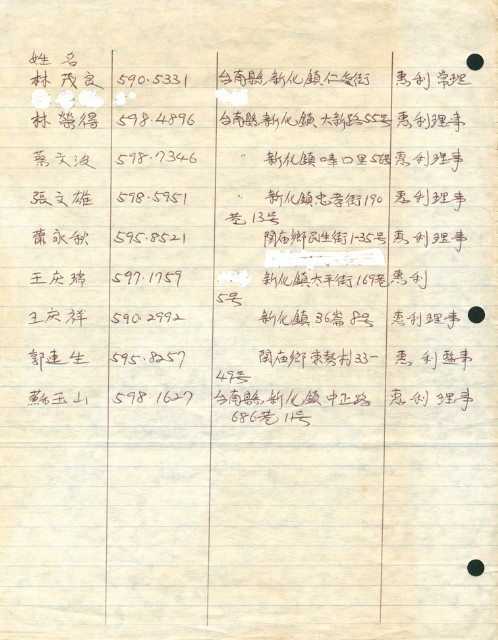 姓 名
林茂良 590.5331 台南縣新化鎮仁愛街 惠利常理
林榮得 598.4896 台南縣新化鎮大新路55号 惠利理事
蔡文波 598.7346 〃 新化鎮𦰡口里56号 惠利理事
張文雄 598.5951 〃 新化鎮忠孝街190
巷13号 惠利理事
蕭永秋 595.8521 関庙鄉民生街1-35号 惠利理事
王庆瑞 597.1759 新化鎮太平街169巷 惠利
5号
王庆祥 590.2992 新化鎮36崙8号 惠利理事
郭連生 595.8257 関庙鄉東勢村33-
49号 惠利監事
蘇玉山 598.1627 台南縣新化鎮中正路 惠利理事
686巷11号